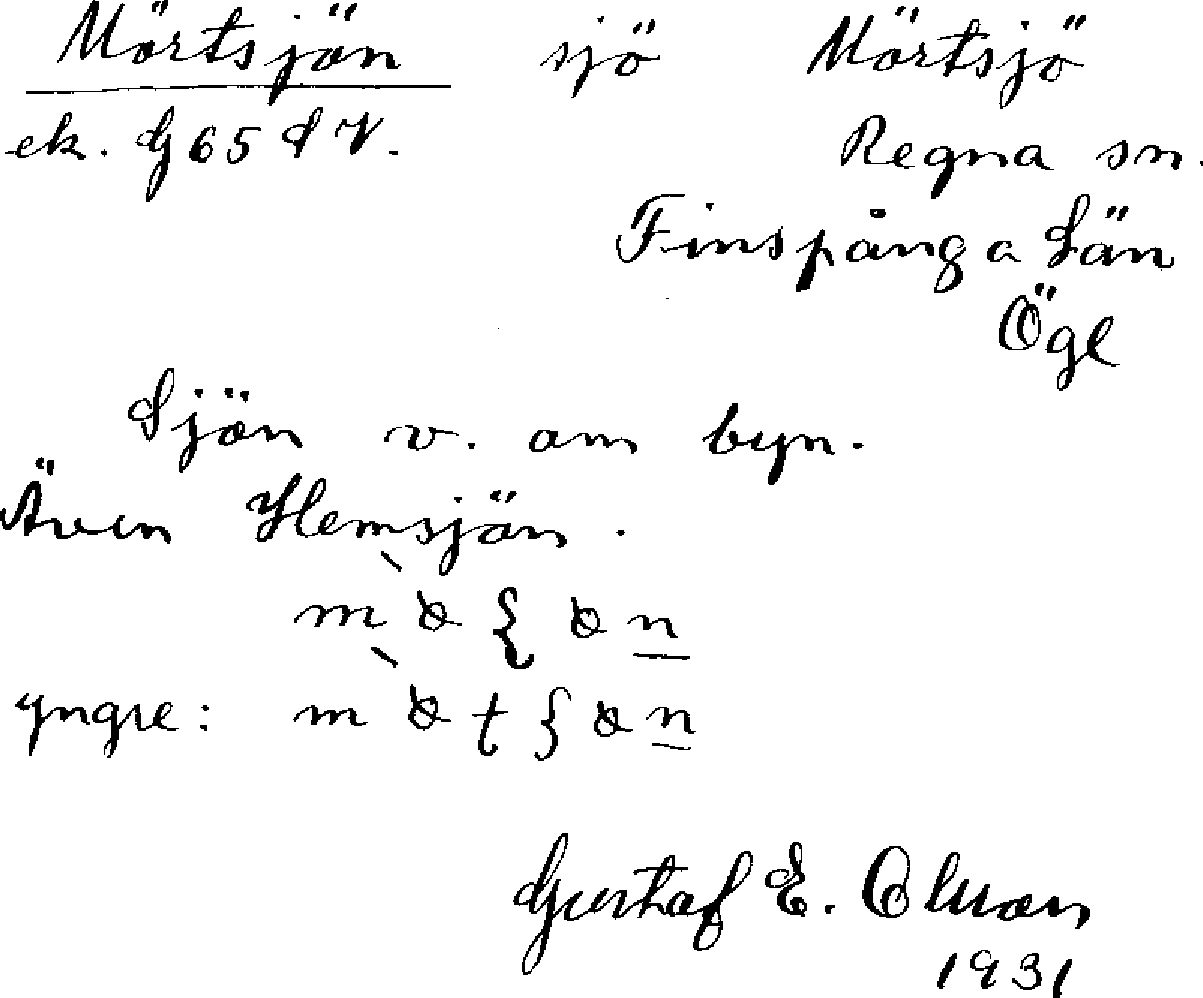 Mörtsjön sjö Mörtsjö
ek. G 65 d V. Regna sn.
Finspånga Län
Ögl
Sjön v. om byn.
Även Hemsjön.
yngre:
Gustaf E. Olsson
1931